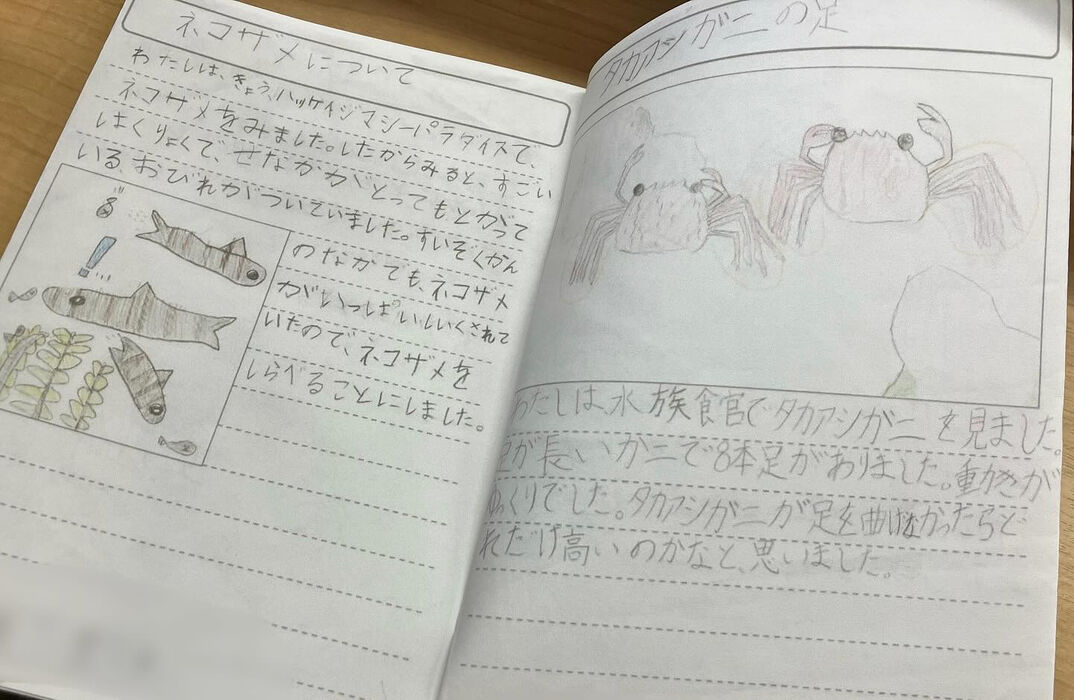 ネコザメについて
わたしは、きょう、ハッケイジマシーパラダイスで、
ネコザメをみました。したからみると、すごい
はくりょくで、せなかがとってもとがって
いる、おびれがついていました。すいぞくかん
のなかでも、ネコザメ
がいっぱいしいくされて
いたので、ネコザメを
しらべることにしました。
タカアシガニの足
わたしは、水族館でタカアシガニを見ました。
足が長いカニで8本足がありました。動きが
ゆっくりでした。タカアシガニが足を曲げなかったらど
れだけ高いのかなと、思いました。